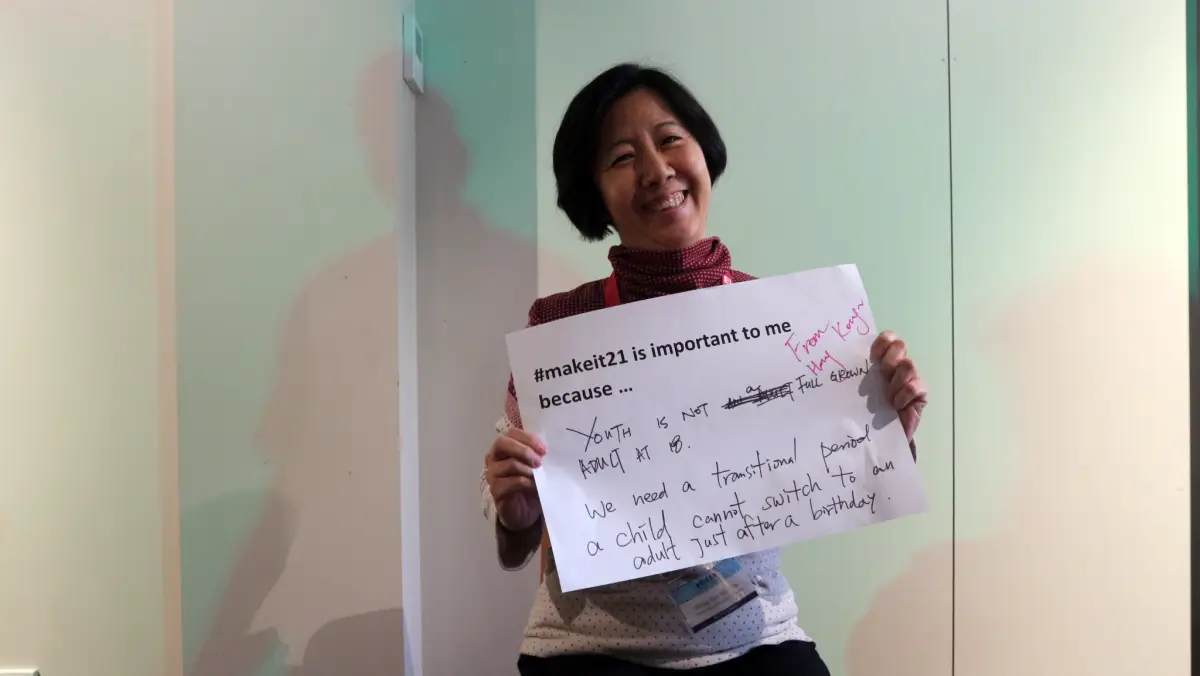 #makeit21 is important to me
because ...
From
Hong Kong~
YOUTH IS NOT as FULL GROWN
ADULT AT 18.
We need a transitional period
a child cannot switch to an
adult just after a birthday.